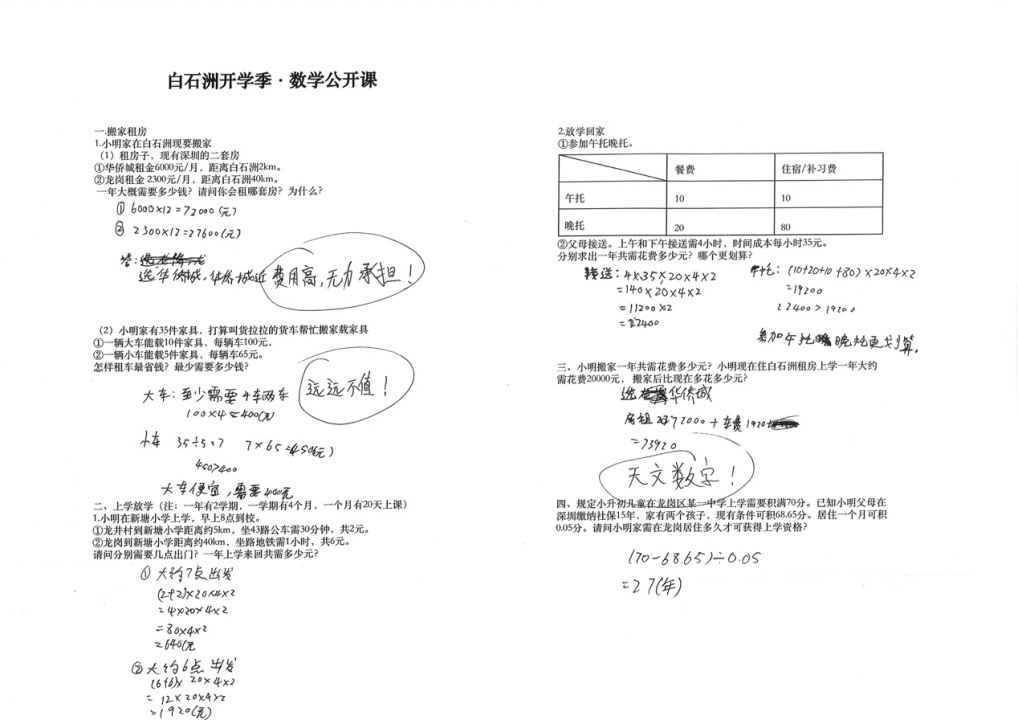 白石洲开学季·数学公开课
一.搬家租房
1.小明家在白石洲现要搬家
（1）租房子，现有深圳的二套房
①华侨城租金6000元/月，距离白石洲2km。
②龙岗租金 2300元/月，距离白石洲40km。
一年大概需要多少钱？请问你会租哪套房？为什么？
① 6000×12=72000(元)
② 2300×12=27600(元)
答：
选华侨城，华侨城近
费用高，无力承担！
（2）小明家有35件家具，打算叫货拉拉的货车帮忙搬家载家具
①一辆大车能载10件家具，每辆车100元，
②一辆小车能载5件家具，每辆车65元。
怎样租车最省钱？最少需要多少钱？
远远不值！
大车：至少需要4车两车
100×4=400(元)
小车 35÷5=7 7×65=450(元)
450>400
大车便宜，需要400元
二、上学放学（注：一年有2学期，一学期有4个月，一个月有20天上课）
1.小明在新塘小学上学，早上8点到校。
①龙井村到新塘小学距离约5km，坐43路公车需30分钟，共2元。
②龙岗到新塘小学距离约40km，坐路地铁需1小时，共6元。
请问分别需要几点出门？一年上学来回共需多少元？
① 大约7点出发
(2+2)×20×4×2
=4×20×4×2
=80×4×2
=640(元
② 大约6点出发
(6+6)× 20×4×2
=12×20×4×2
=1920(元)
2.放学回家
①参加午托晚托。
餐费 住宿/补习费
午托 10 10
晚托 20 80
②父母接送。上午和下午接送需4小时，时间成本每小时35元。
分别求出一年共需花费多少元？哪个更划算？
接送：4×35×20×4×2
=140×20×4×2
=11200×2
=22400
(10+20+10+80)×20×4×2
=19200
22400>19200
参加午托晚托更划算。
三、小明搬家一年共需花费多少元？小明现在住白石洲租房上学一年大约
需花费20000元，搬家后比现在多花多少元？
选华侨城
房租 72000+车费1920
=73920
天文数字！
四、规定小升初儿童在龙岗区某一中学上学需要积满70分。已知小明父母在
深圳缴纳社保15年，家有两个孩子，现有条件可积68.65分。居住一个月可积
0.05分。请问小明家需在龙岗居住多久才可获得上学资格？
(70-68.65)÷0.05
=27(年)